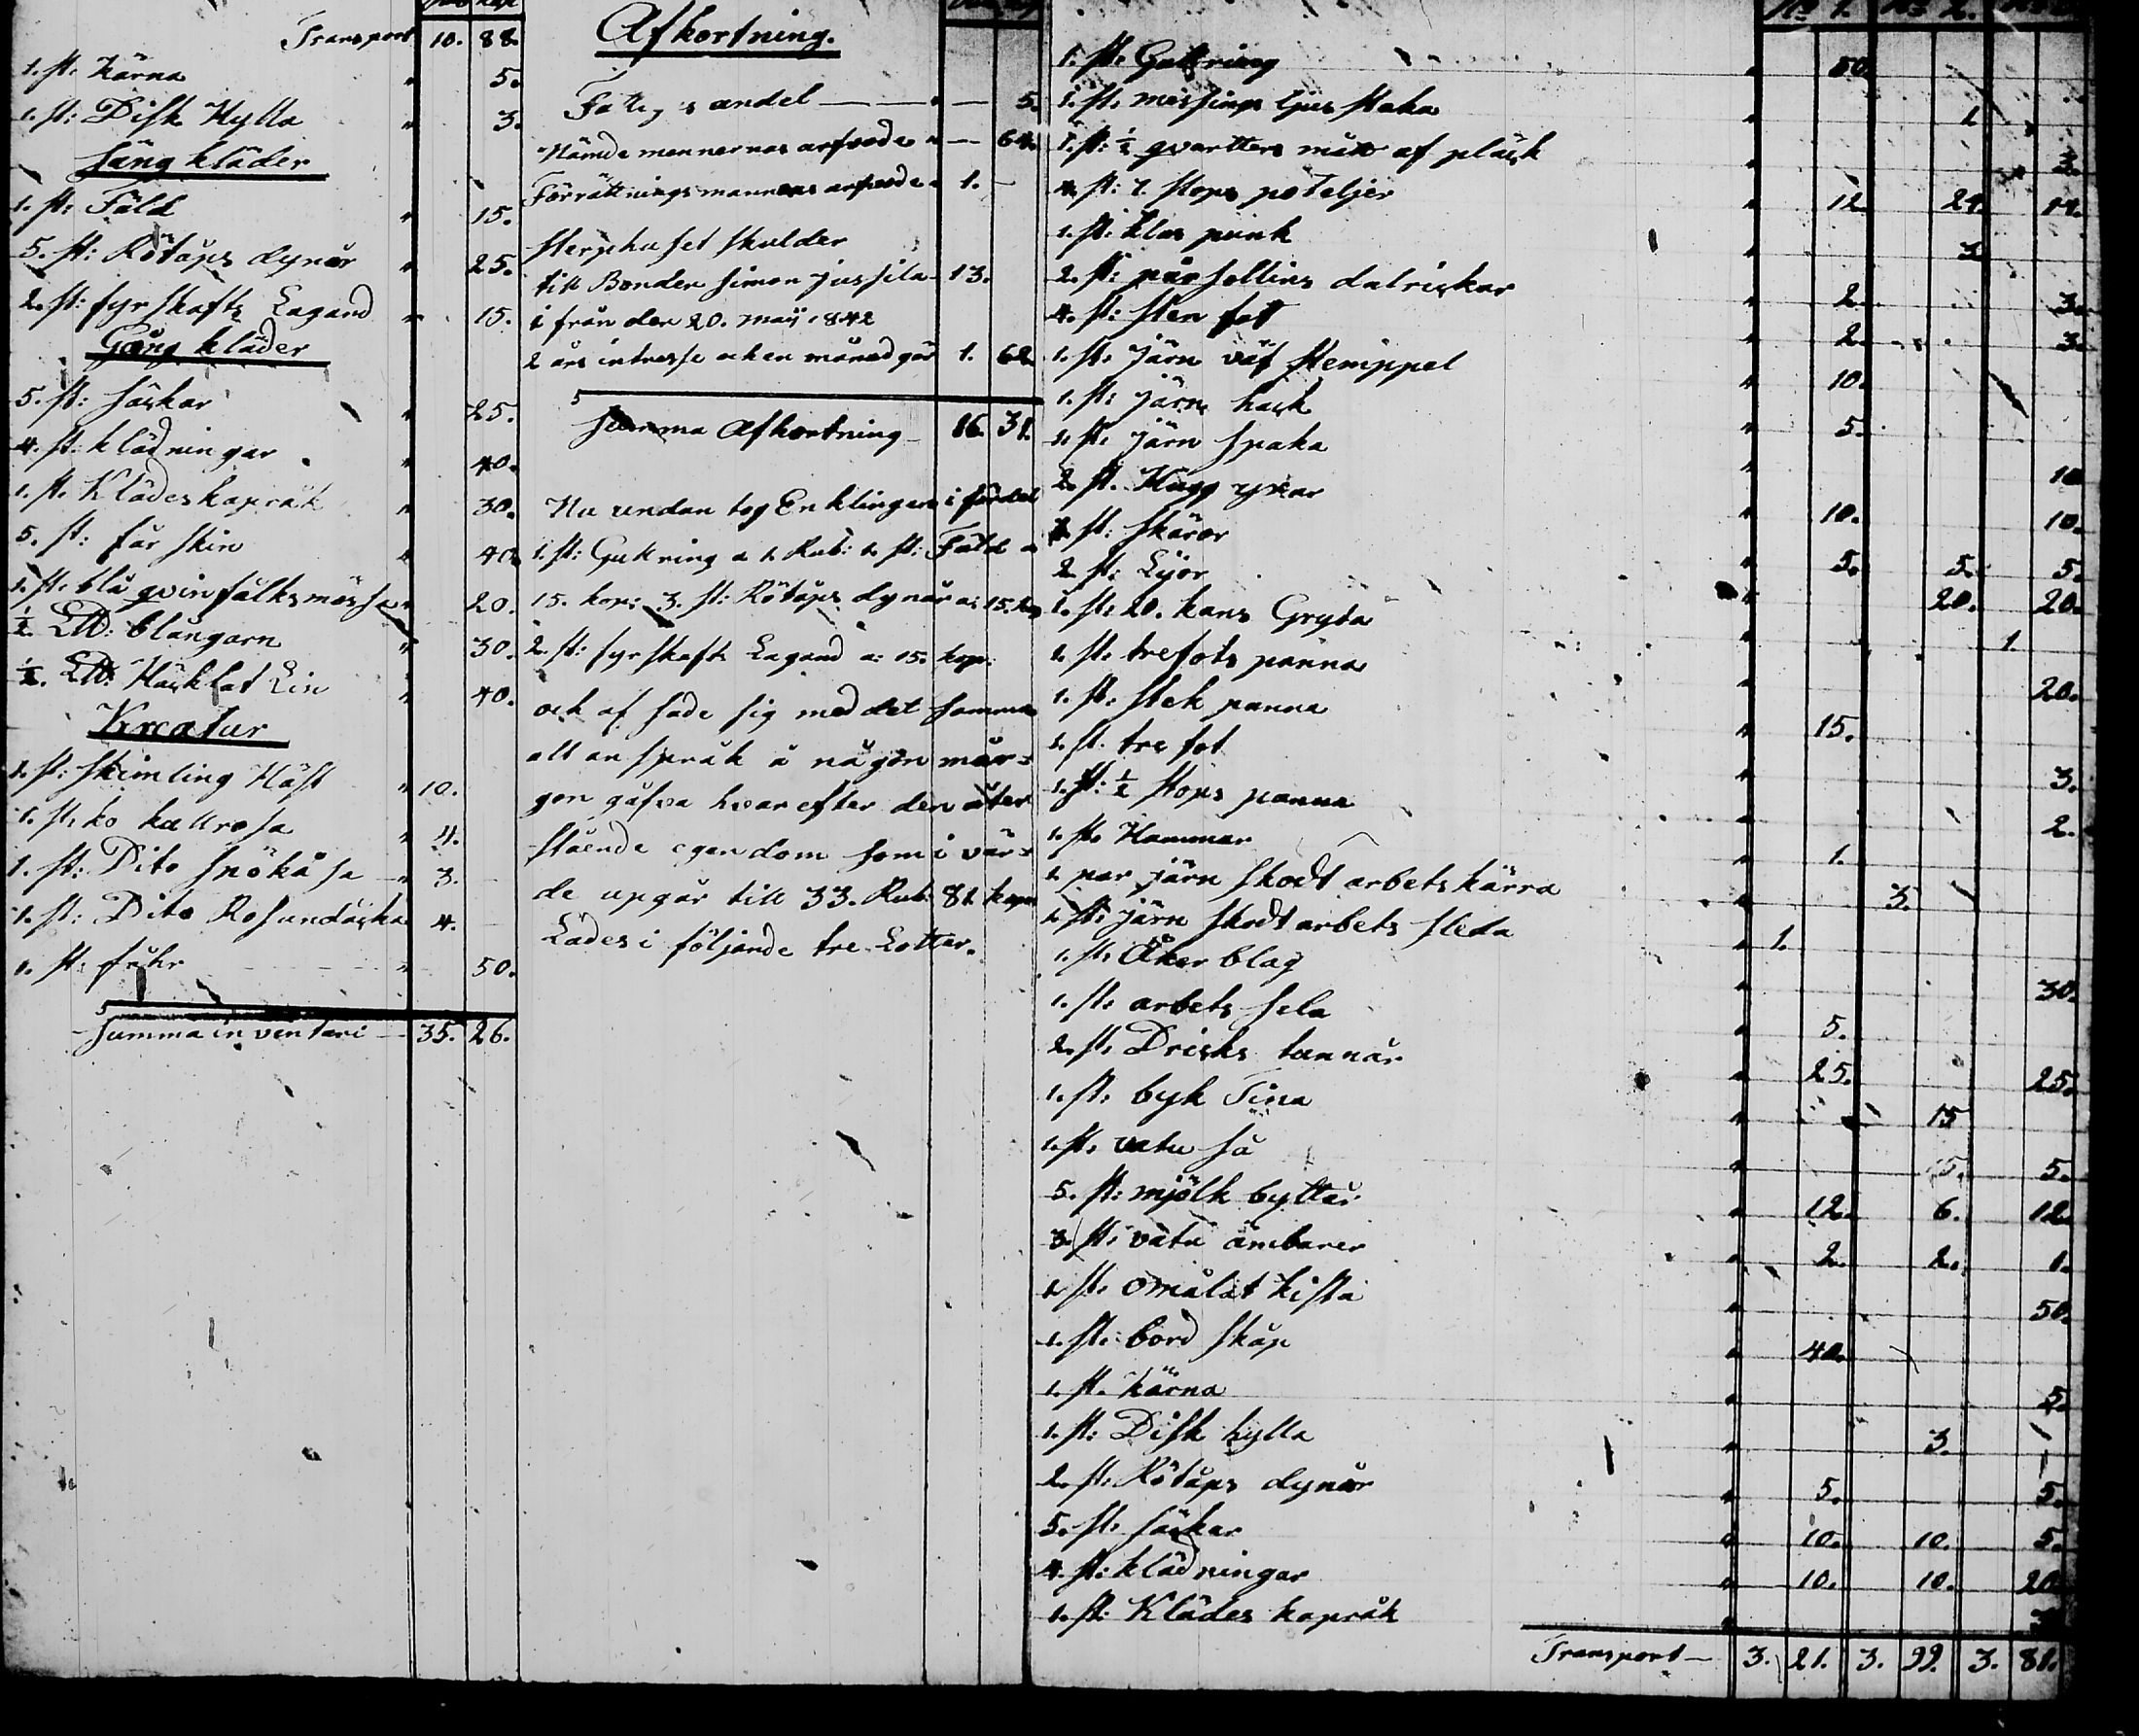 Transport 10. 88.
1. st: kärna " 5.
1. st: Disk Hylla " 3.
Säng kläder
1. st: Fäld " 15.
5. st: Rötåps dynår " 25.
2. st: fyrskafts Lagand " 15.
Gång kläder
5. st: säckar " 25.
4. st: klädningar " 40.
1. st. Klädeskapråk " 30.
5. st: får skin " 40.
1. st. blå qvinfålksmössa " 20.
½. LŦ: blångarn " 30.
½. LŦ: Häcklat Lin " 40.
Kreatur
1. st: skimling Häst " 10.
1. st: ko kallrosa " 4.
1. st: Dito snökåsa " 3.
1. st: Dito Rosundäcka 4.
1. st: fåhr " 50.
Summa inventari 35. 26.
Afkortning.
Fattigs andel — 5.
Nämdemennernas arfvode " — 64.
Förrättningsmannens arfvode " 1. —
Sterphuset skulder
till Bonden Simon Jussila 13.
i från den 20. maij 1842
2 års intresse och en månad gör 1. 62.
Summa Afkortning 16. 31.
Nu undan tog Enklingen i fördel
1. st: Gullring a 1. Rub: 1. st: Fäld a
15. kop: 3. st: Rötåps dynår a: 15. kop
2. st: fyrskaft Lagand a: 15. kop:
och af sade sig med det samma
allt anspråk å någon mår=
gon gåfva hvarefter den åter
stående egendom som i vär=
de upgår till 33. Rub: 81. kop:
Lades i följande tre Lotter.
No 1. No 2.
1. st: Gullring " 50.
1. st: messings ljus staka " 1.
1. st: ½ qvartters mått af pläck 3.
4. st: 1. stops poteljer " 12. 24. 14.
1. st: klas punk 3.
2. st: pårsollins dalrickar " 2. 3.
4. st: sten fat " 2. 3.
1. st: Järn väf stemppel " 10.
1. st: järn hack " 5.
1. st: järn spaka " 10
2. st. Hugg yxar " 10. 10.
st: skäror " 5. 5. 5.
2. st: Lijor " 20. 20.
1. st: 20. kans Gryta " 1
1. st: trefots panna " 20.
1. st: stek panna " 15.
1. st. tre fot " 3.
1. st: ½ stops panna 2.
1. st. Hammar " 1.
1 par järn skodt arbetskärra " 3.
1. st: järn skodt arbets sleda " 1.
1. st: Åker blag " 30.
1. st: arbets sela " 5.
2. st: Dricks tunnår " 25. 25.
1. st: byk Tina " 15
1. st. vatu så " 5.
5. st: mjölk byttar " 12. 6. 12.
3. st: vatu ämbarer " 2. 2. 1.
1 st. omålat kista " 50.
1. st: bord skåp " 40.
1. st. kärna " 5.
1. st: Disk hylla " 3.
2. st: Rötåps dynår " 5. 5.
5. st. säckar " 10. 10. 5.
4. st: klädningar " 10. 10. 20
1. st: Klädes kapråk "
Transport — 3. 21. 3. 99. 3. 81.